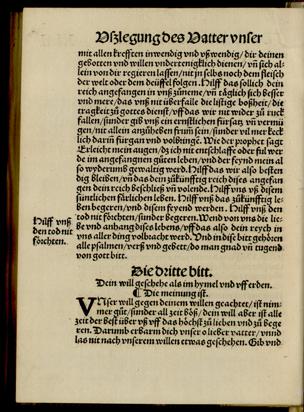 Vszlegung des Vatter vnser
mit allen krefften inwendig vnd vßwendig / dir deinen
gebotten vnd willen vnderteniglich dienen / vñ sich al-
lein von dir regieren lassen / nit jn selbs noch dem fleisch
der welt oder dem deüffel folgen. Hilff das sollich dein
reich angefangen in vnß zůneme / vñ täglich sich besser
vnd mere / das vnß nit überfalle die listige boßheit / die
tragkeit zů gottes dienst / vff das wir nit wider zů ruck
fallen / sunder gib vnß ein ernstlichen fürsatz vñ vermü-
gen / nit allein anzůheben frum̃ sein / sunder vil mer keck
lich darin̄ fürgan vnd volbringẽ. Wie der prophet sagt
Erleicht mein augen / dz ich nit entschlaffe oder ful wer
de im angefangnen gůten leben / vnd der feynd mein al
so wyderumb gewaltig werd. Hilff das wir also bestẽn
dig bleiben / vñ das dein zůkünfftig reich dises angefan
gen dein reich beschließ vñ volende. Hilff vns vß disem
süntlichen förlichen leben. Hilff vnß das zůkünfftig le-
ben begeren / vnd disem feynd werden. Hilff vnß den
tod nit förchten / sunder begeren. Wend von vns die lie-
be vnd anhang diß lebens / vff das also dein reych in
vns aller ding volbracht werd. Vnd in diser bitt gehören
alle psalmen / verß vnd gebett / do man gnad vñ tugend
von gott bitt.
Hilff vnß
den tod nit
förchten.
Die dritte bitt.
Dein will geschehe als im hymel vnd vff erden.
¶ Die meinung ist.
VNser will gegen deinem willen geachtet / ist nim-
mer gůt / sunder all zeit böß / dein will aber ist alle
zeit der best über vß vff das höchst zů lieben vnd zů bege
ren. Darumb erbarm dich vnser o lieber vatter / vnnd
las nit nach vnserem willen etwas geschehen. Gib vnd